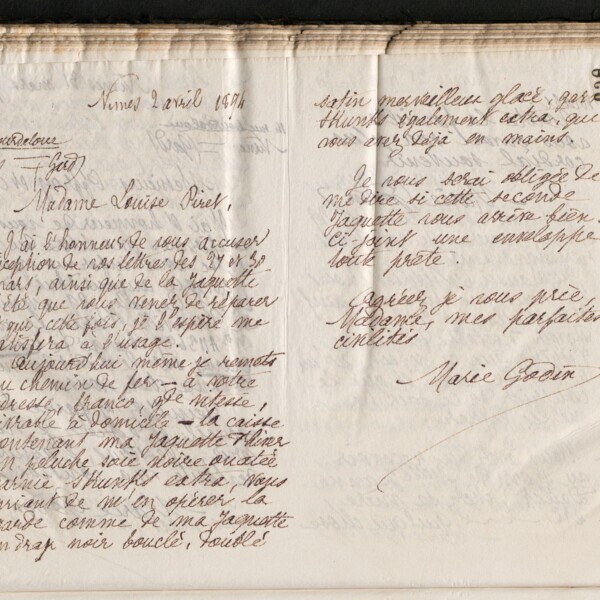 Nimes 2 avril 1894
Gard
Madame Louise Piret,
J'ai l'honneur de vous accuser
ception de vos lettres des 27 et 30
ars, ainsi que de la Jaquette
été que vous venez de réparer
qui cette fois, je l'espère me
atisfera à l'usage.
Aujourd'hui même je remets
u chemin de fer – à votre
dresse, franco, gde vitesse,
ivrable à domicile – la caisse
ontenant ma Jaquette d'hiver
n peluche soie noire ouatée
arnie skunks extra, vous
riant de m'en opérer la
arde comme de ma Jaquette
n drap noir bouclé, doublé
satin merveilleux glacé, garn
skunks également extra, que
vous avez déjà en mains.
Je vous serai obligée de
me dire si cette seconde
Jaquette vous arrive bien.
Ci-joint une enveloppe
toute prête.
Agréez, je vous prie,
Madame, mes parfaites
civilités
Marie Godin